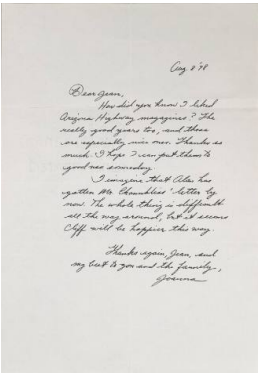 Aug 8 '78
Dear Jean,
How did you know I liked
Arizona Highway magazines? The
really good years too, and these
are especially nice ones. Thanks so
much. I hope I can put them to
good use someday.
I imagine that Alex has
gotten Mr. Chambless' letter by
now. The whole thing is difficult
all the way around, but it seems
Cliff will be happier this way.
Thanks again, Jean, and
my best to you and the family,
Joanna